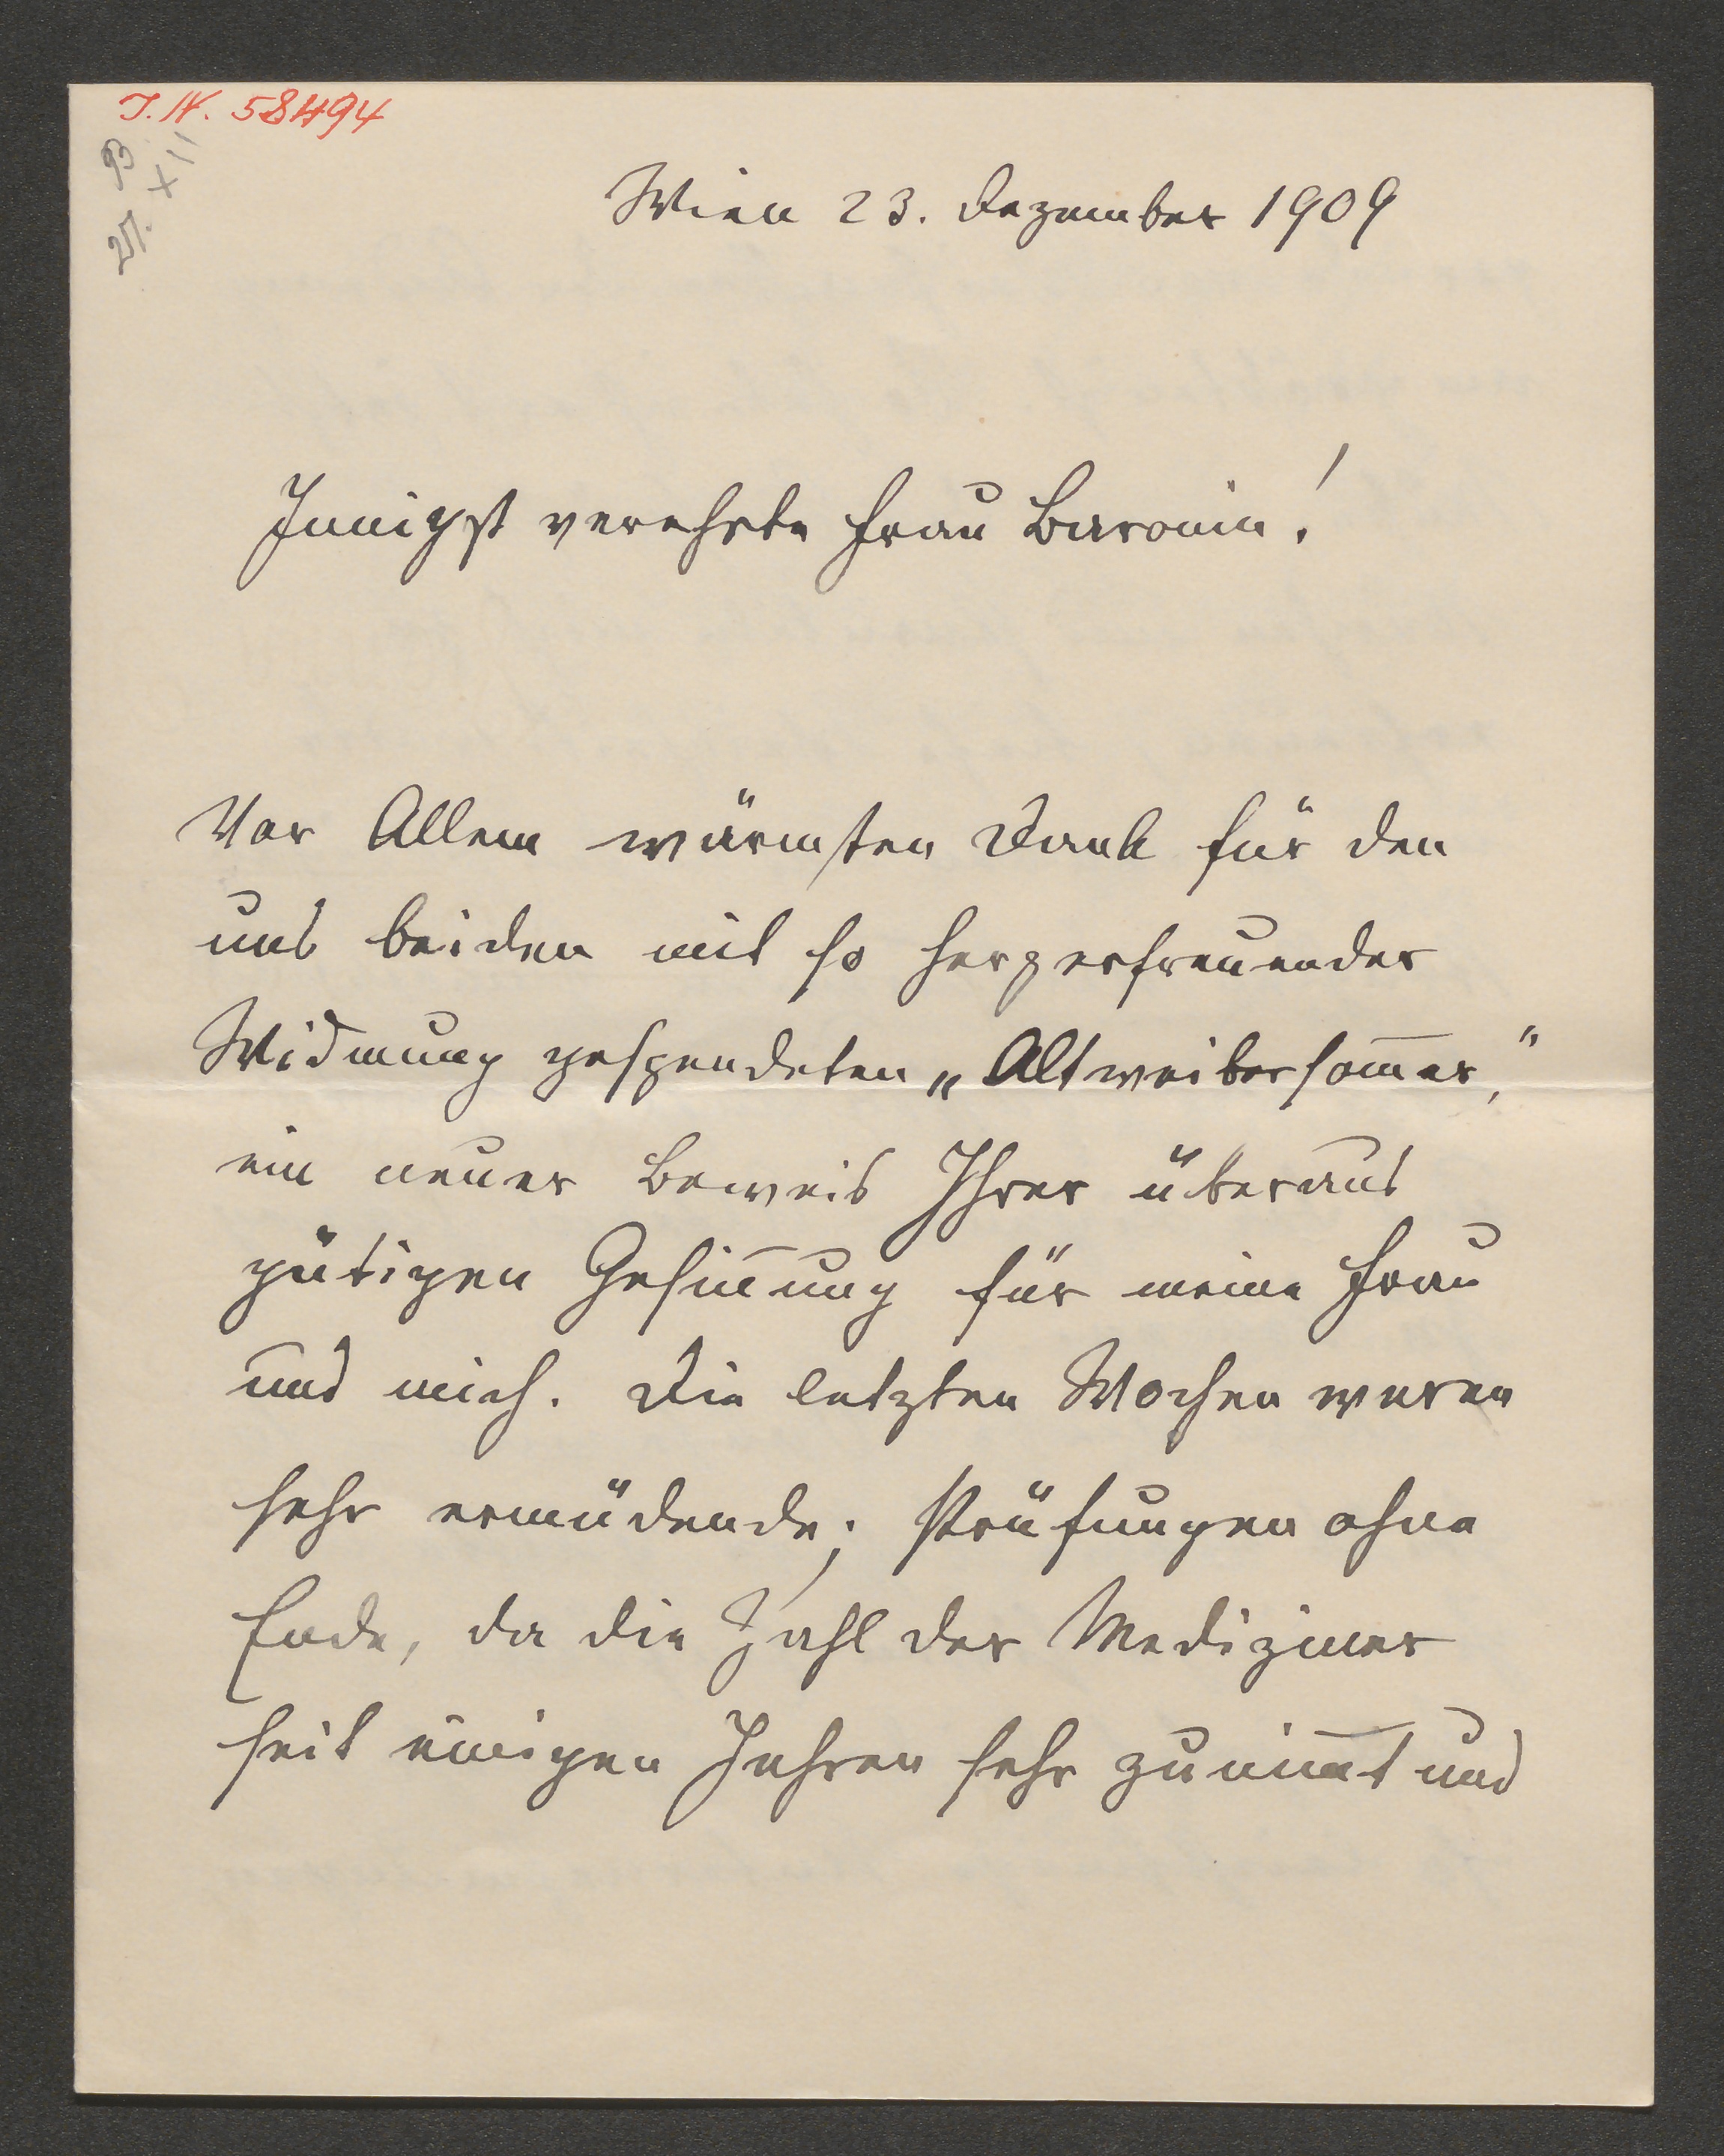 I.N. 58494
27. XII
Wien 23. Dezember 1909
Innigst verehrte Frau Baronin!
Vor Allem wärmsten Dank für den
uns beiden mit so herzerfreuender
Widmung gespendeten „Altweibersom̄er,“
ein neuer Beweis Ihrer überaus
gütigen Gesin̄ung für meine Frau
und mich. Die letzten Wochen waren
sehr ermüdende; Prüfungen ohne
Ende, da die Zahl der Mediziner
seit einigen Jahren sehr zunim̄t und